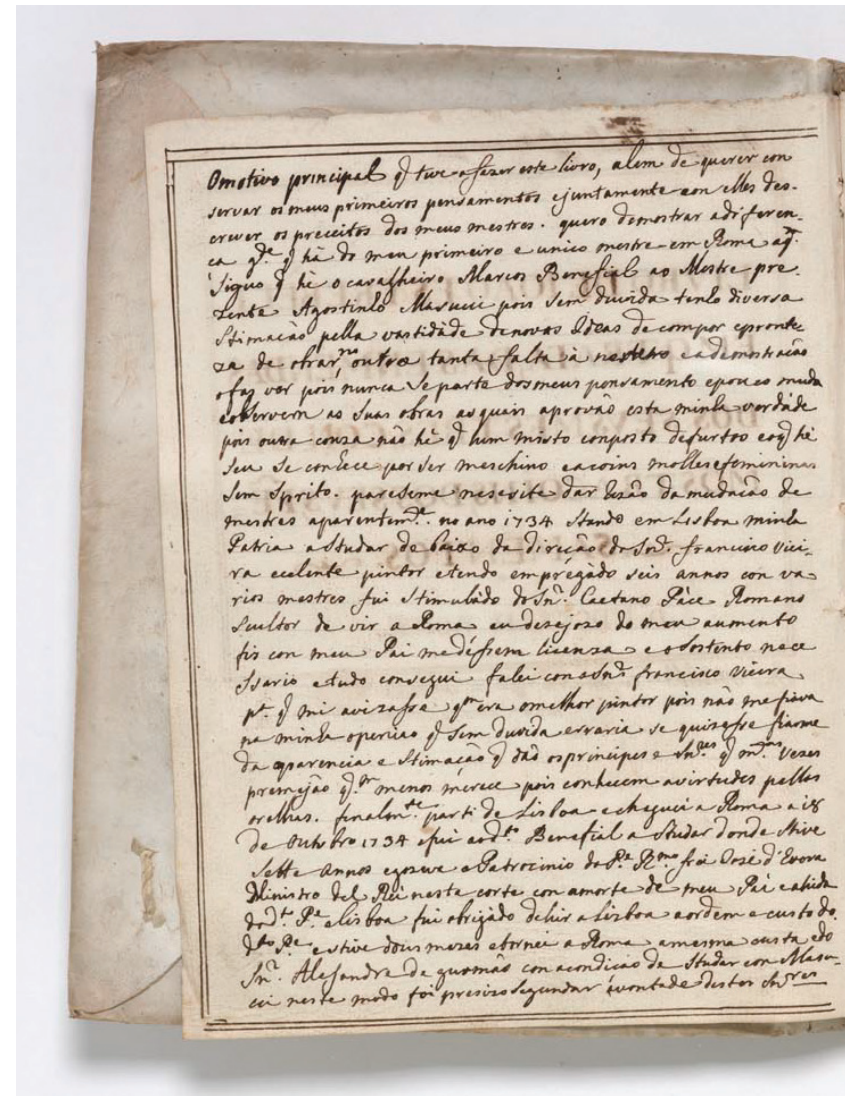 Omotivo principal q̃ tive afazer este livro, alem de querer con
servar os meus primeiros pensamentos ejuntamente con elles des-
crever os preceitos dos meus mestres. quero demostrar adiferen-
ca q.e q̃ há do meu primeiro e unico mestre em Roma aq̃.
Siguo q̃ hè o cavalheiro Marcos Benefial ao Mestre pre-
zente Agostinho Masucii pois Sem duvida tenho diversa
Stimacão pella vastidàde denovas Ideas decompor epronte-
za de obrar, outra tanta falta à neste eademostracão
ofaz ver pois nunca Se parte dosmeus pensamento epouco muda
observem as Suas obras asquais aprovão esta minha verdàde
pois outra couza não hè q̃ hum misto conposto defurtos eoq̃ hè
Seu Se conhece por ser meschino eacoins molles efemininas
Sem Sprito. pareseme nesesite dar Rezão da mudacão de
mestres aparentem.te no ano 1734 Stando em Lisboa minha
Patria a Studar de baixo da direcão do Sn.r francisco viei-
ra ecelente pintor etendo empregàdo seis annos con va-
rios mestres fui Stimulàdo do Sn.r Caetano Pàce Romano
Scultor de vir a Roma eu desejozo do meu aumento
fis con meu Pai medéssem licenza e o Sostento nece
Ssario etudo consegui falei con o Sn.r francisco vieira
p.a q̃ mi avizasse q.m era omelhor pintor pois não me fiava
na minha openiao q̃ Sem duvida erraria se quizesse fiarme
da aparencia e Stimacão q̃ dão osprincipes e Sn.res q̃ m.tas vezes
premejão q.m menos merece pois conhecem avirtudes pellas
orelhas. finalm.te parti de Lisboa echeguei a Roma a 18
de Outubro 1734 efui aod.to Benefial a Studar donde Stive
Sette annos egozava o Patrocinio do P.e R.mo frei José d'Evora
Ministro del Rei nesta corte con amorte de meu Pai eahida
dod.to P.e a Lisboa fui obrigàdo dehir a Lizboa aordem e custo do
d.to P.e estive dous mezes etornei a Roma amesma custa edo
Sn.r Alesandre de gusmão con acondicão de Studar con Masu-
cii neste modo foi precizo Segundar àvontade destes Sn.res